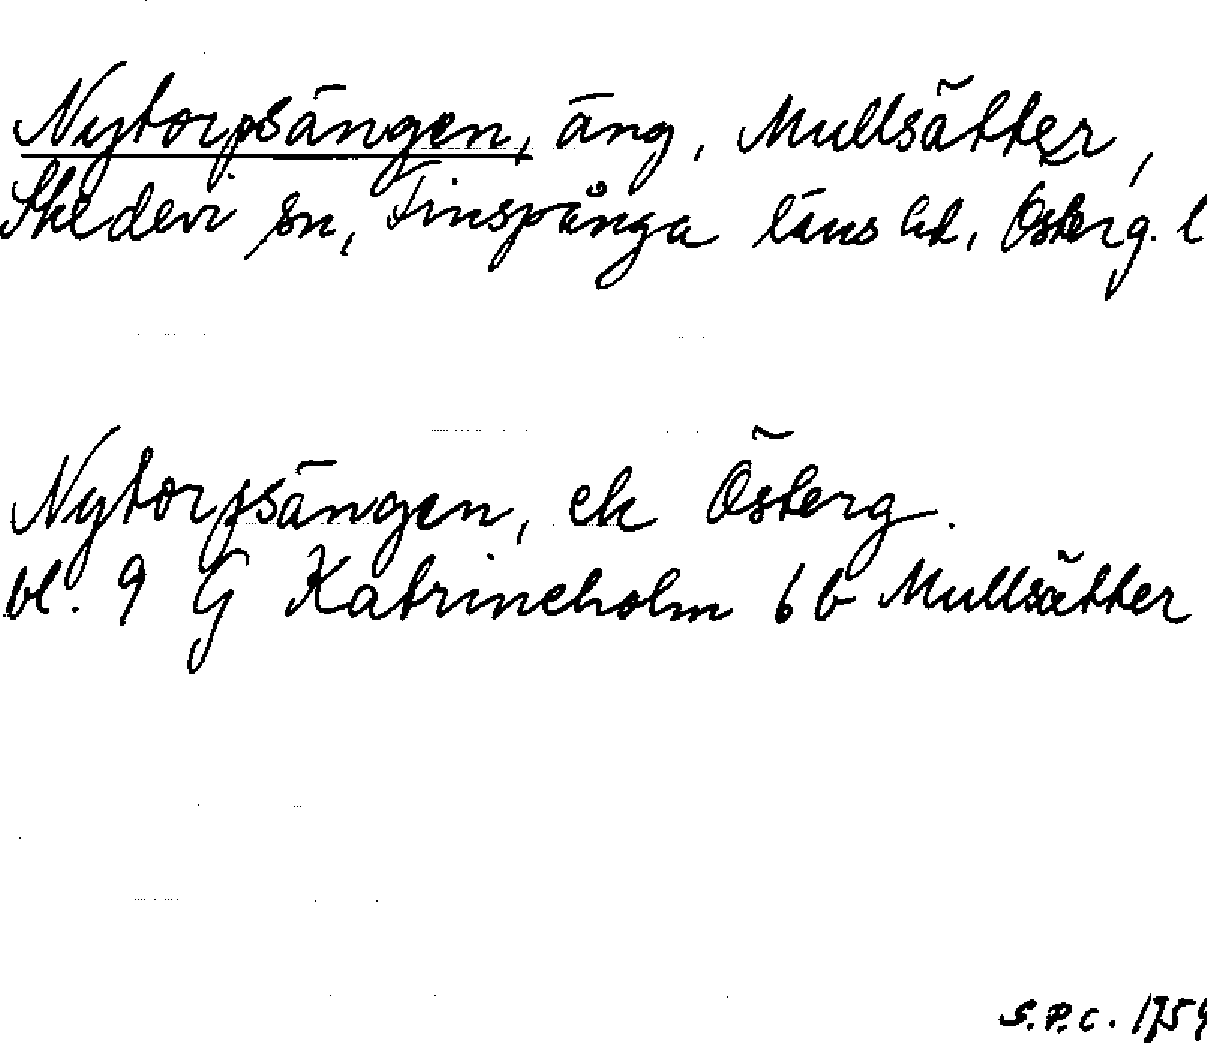 Nytorpsängen, äng, Mullsätter,
Skedevi sn, Finspånga läns hd, Österg. l
Nytorpsängen, ek Österg.
bl. 9 G Katrineholm 6 b Mullsätter
S.P.C. 1759